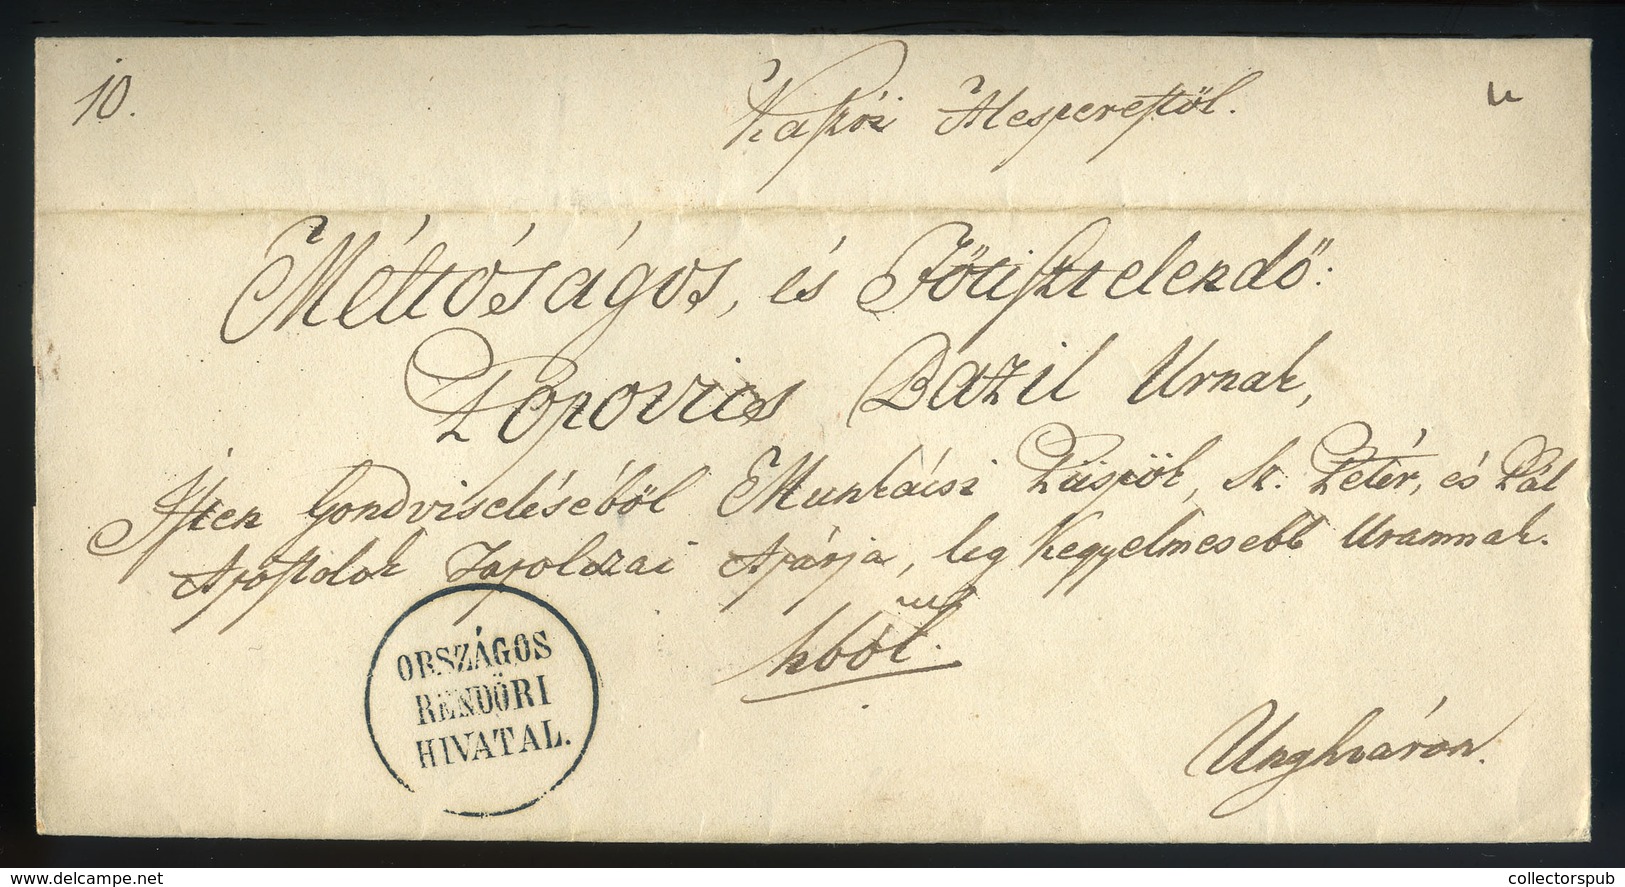 10.
Kassói Alesperestöl.
Méltóságos, és Fötisztelendő:
Popovics Bazil Urnak,
Isten Gondviseléséböl Munkácsi Püspök, sz. Péter, és Pál
Apostolok Tapolczai Apátja, leg Kegyelmesebb Uramnak.
hból.
Unghváron.
ORSZÁGOS
RENDÖRI
HIVATAL.
www.delcampe.net
collectorspub